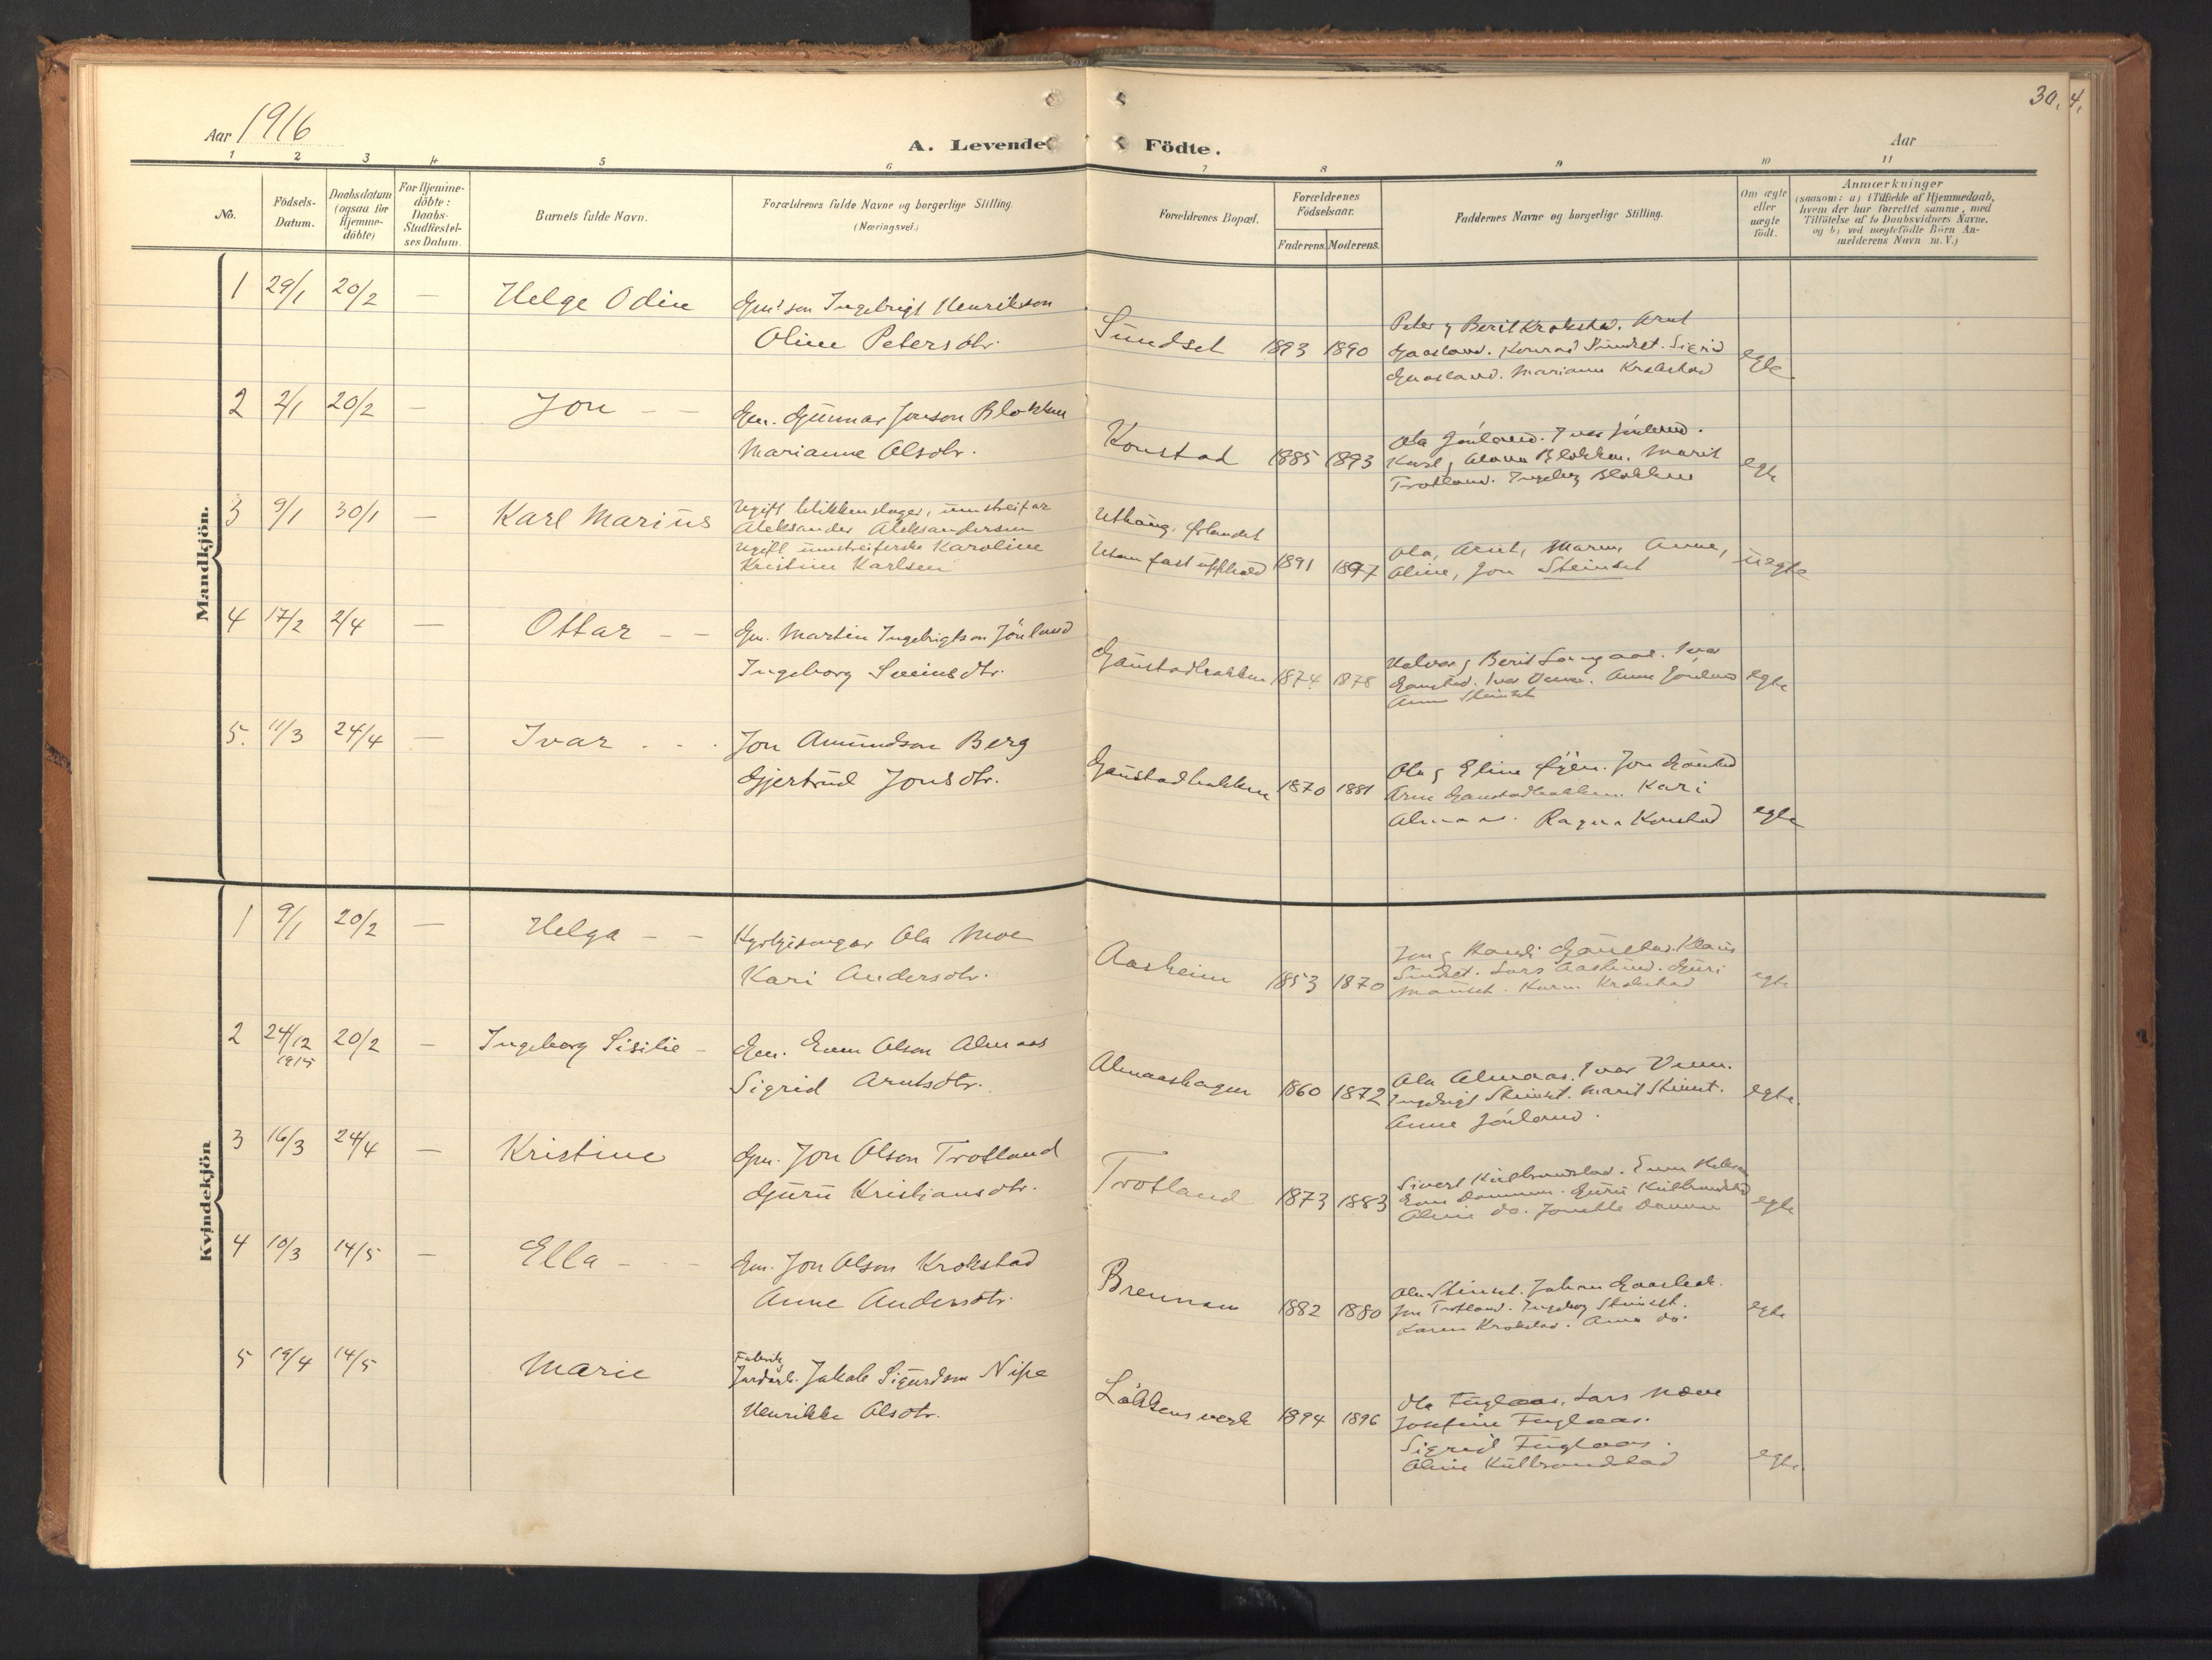 30, 4,
Aar 1916
A. Levende Födte.
Aar
1 2 3 4 5 6 7 8 9 10 11
No.
Födsels-
Datum.
Daabsdatum
(ogsaa for
Hjemme-
döbte)
For Hjemme-
döbte:
Daabs-
Stadfæstel-
ses Datum.
Barnets fulde Navn.
Forældrenes fulde Navne og borgerlige Stilling.
(Næringsvei.)
Forældrenes Bopæl.
Forældrenes
Födselsaar.
Faderens. Moderens.
Faddernes Navne og borgerlige Stilling.
Om ægte
eller
uægte
födt.
Anmærkninger
(saasom: a) i Tilfælde af Hjemmedaab,
hvem der har forrettet samme, med
Tilföielse af to Daabsvidners Navne,
og b) ved uægtefödte Börn An-
melderens Navn m. V.)
Mandkjön.
1 29/1 20/2 — Helge Odin
Gm.son Ingebrigt Henrikson
Oline Petersdtr.
Sundset 1893 1890
Peter g Berit Krokstad. Arnt
Gaasland. Konrad Sundset. Sigrid
Gaasland. Marianne Krokstad
egte
2 2/1 20/2 — Jon — —
Gm. Gunnar Jonson Blokkum
Marianne Olsdtr.
Konstad 1885 1893
Ola Jönland. Ivar Jönland.
Karl g Blokkum. Marit
Trotland. Ingebg Blokkum
egte
3 9/1 30/1 — Karl Marius
Ugift blikkenslager, umstreifar
Aleksander Aleksandersen
Ugift umstreiferske Karoline
Kristine Karlsen
Uthaug, Ørlandet
Utan fast upphald 1891 1897
Ola, Arnt, Maren, Anne,
Oline, Jon Steinset
uegte
4 17/2 2/4 — Ottar — —
Gm. Martin Ingebrigtson Jönland
Ingeborg Sveinsdtr.
Gaustadbakken 1874 1878
Halvor g Berit . Ivar
Gaustad. Ivar . Anne Jönland
Anne Steinset
egte
5. 11/3 24/4 — Ivar . . .
Jon Amundson Berg
Gjertrud Jonsdtr.
Gaustadbakken 1870 1881
Ola g Eline Øyen. Jon Gaustad
Arne Gaustadbakken. Kari
Almaas. Ragna Konstad
egte
Kvindekjön
1 9/1 20/2 — Helga — —
Kyrkjesongar Ola Moe
Kari Andersdtr.
Aasheim 1853 1870
Jon g Randi Gaustad. Klaus
Sundset. Lars Aaslund. Guri
. Karen Krokstad
egte
2 24/12 1915 20/2 — Ingeborg Sisilie —
Gm. Even Olson Almaas
Sigrid Arntsdtr.
Almaashagen 1860 1872
Ola Almaas. Ivar .
Ingebrigt Steinset. Marit Steinset.
Anne Jönland.
egte.
3 16/3 24/4 — Kristine
Gm. Jon Olson Trotland
Guru Kristiansdtr.
Trotland 1873 1883
Sivert Kulbrandstad. Even
Even . Guru Kulbrandstad
Oline do.
egte
4 10/3 14/5 — Ella — . —
Gm. Jon Olson Krokstad
Anne Andersdtr.
Brennan 1882 1880
Ola Steinset. Johan
Jon Trotland. Ingebg Steinset.
Karen Krokstad. Anne do.
egte
5 19/4 14/5 Marie
Fabrik
Jordarb. Jakob Sigurdson Nipe
Henrikke Olsdtr.
Løkkens verk 1894 1896
Ola Fuglaas, Lars Moen
Josefine Fuglaas.
Sigrid Fuglaas.
Oline Kulbrandstad
egte.